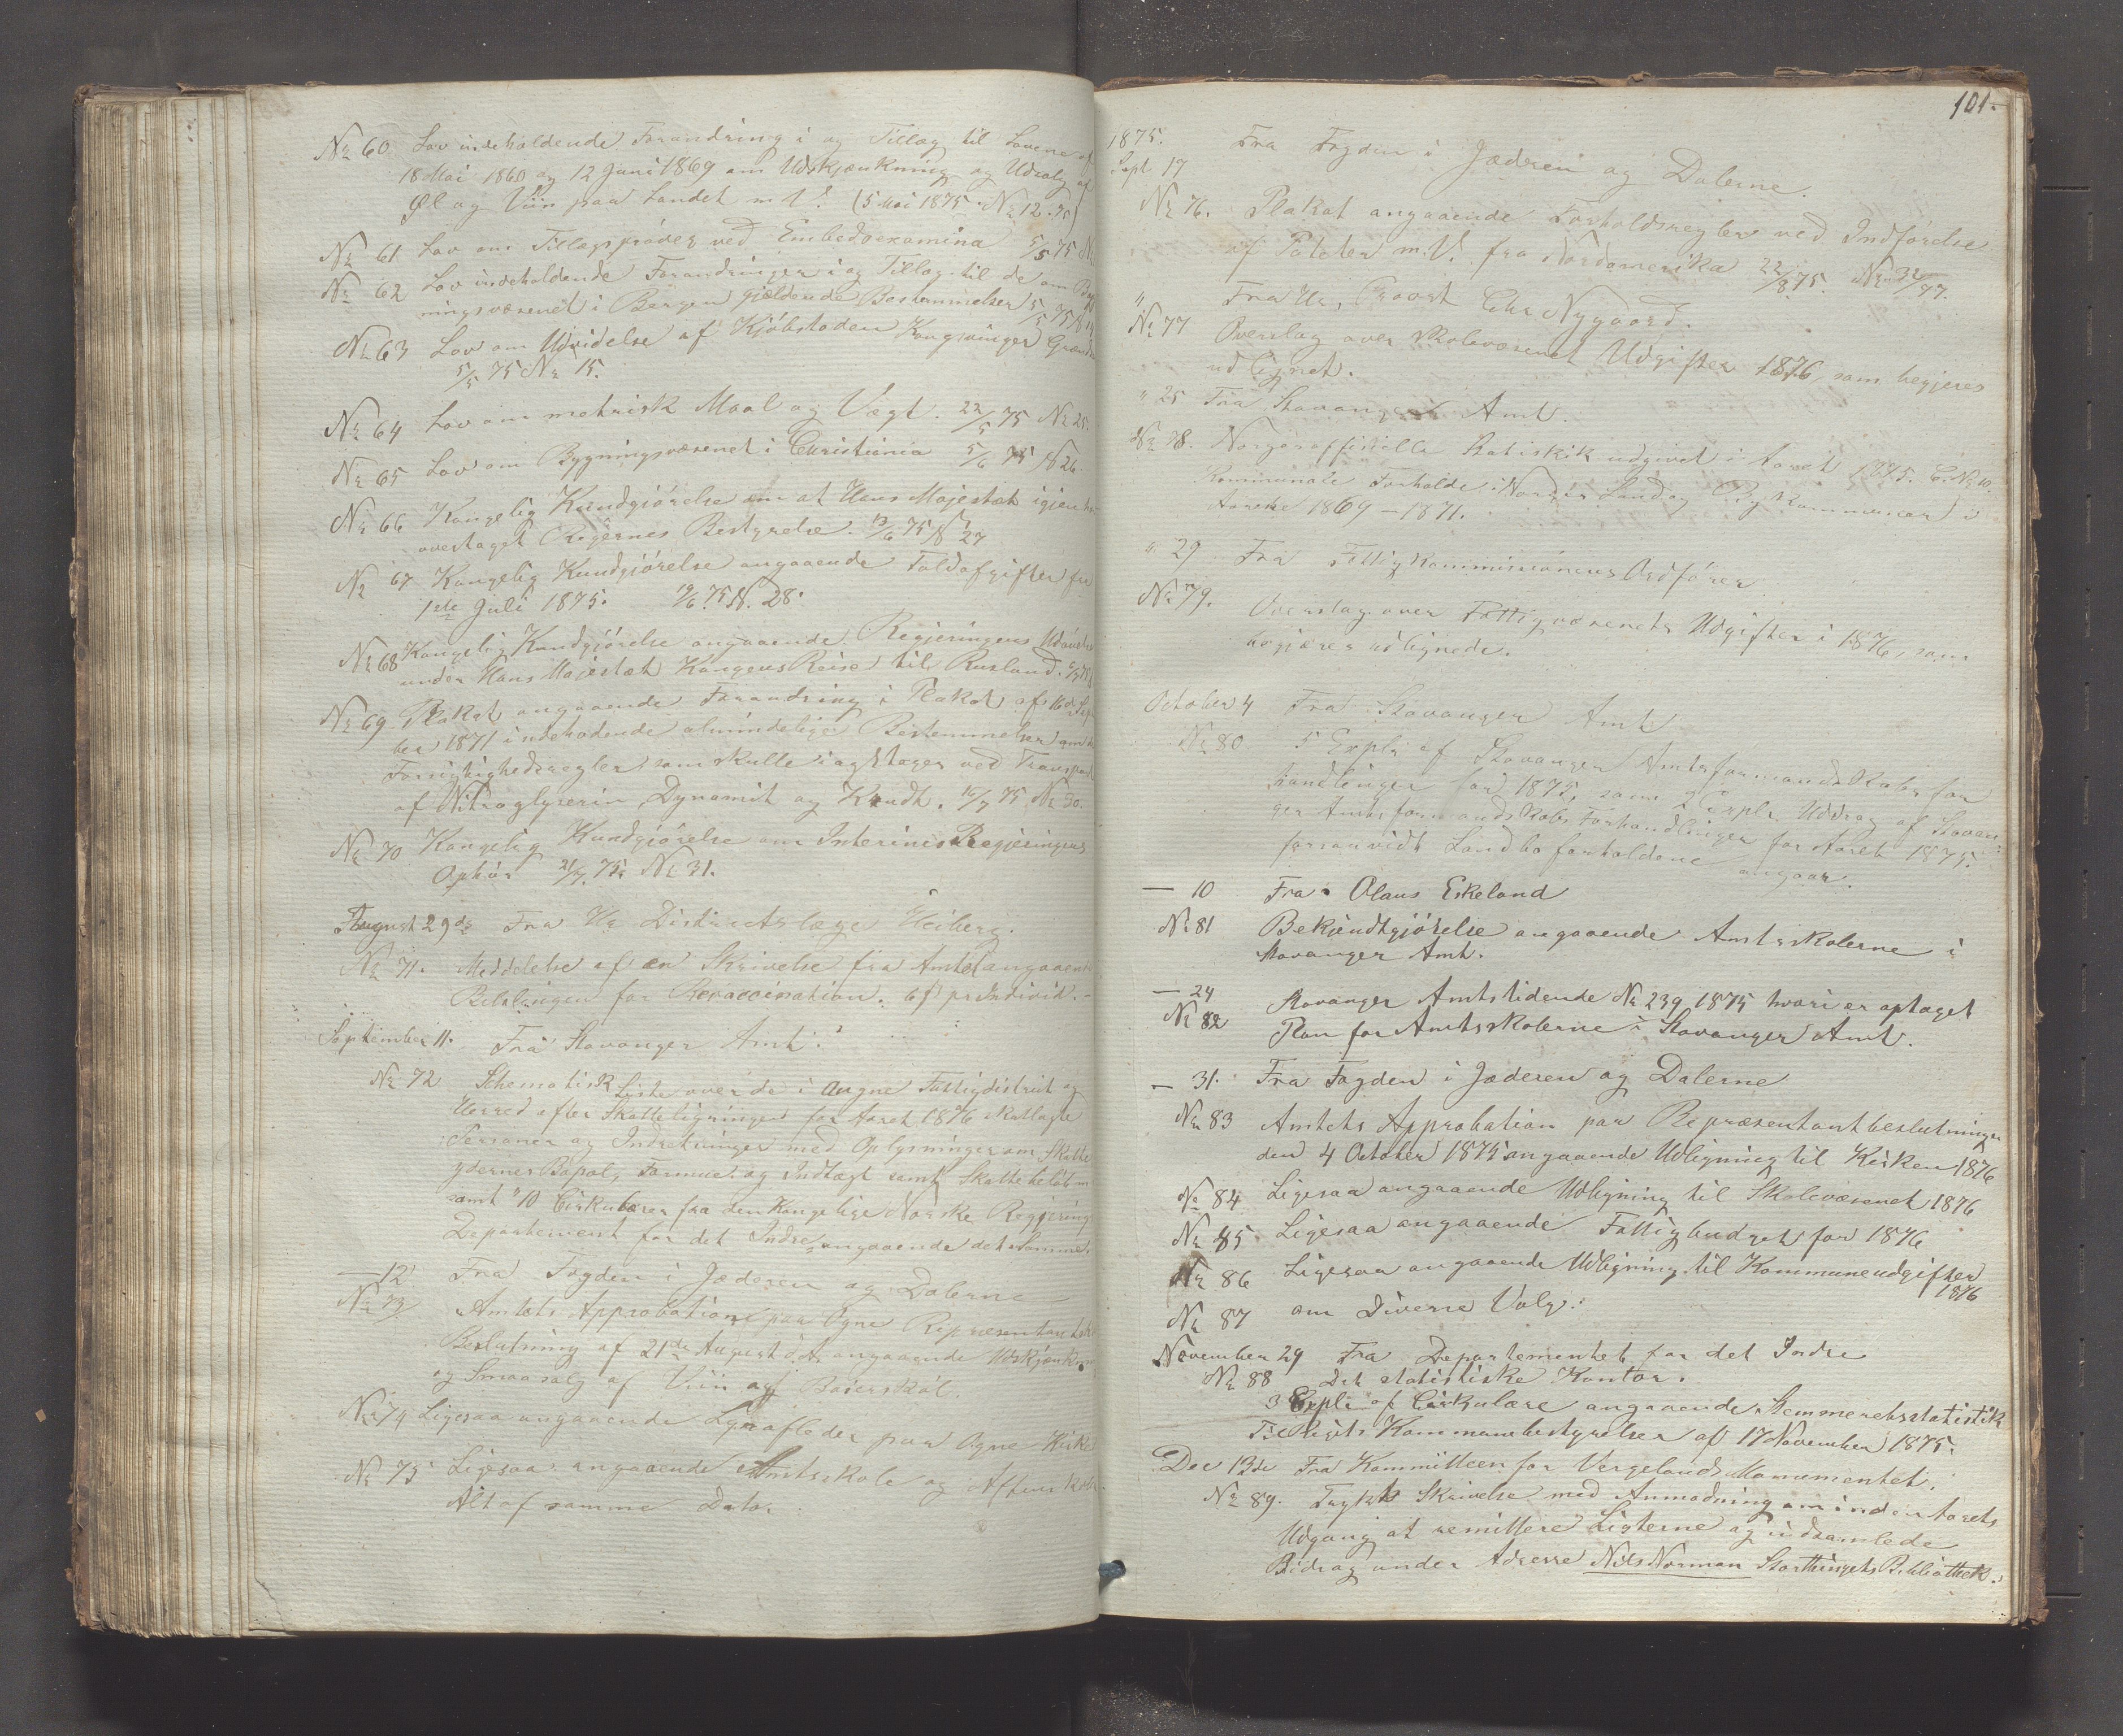 No 60 Lov indeholdende Forandring i og Tillæg til Lovene af
18 Mai 1860 og 12 Juni 1869 om Udskjænkning og Udsalg af
Øl og Viin paa Landet m. V. (5 Mai 1875 No 12. 75)
No 61 Lov om Tillægsprøver ved Embedsexamina 5/5 75 No
No 62 Lov indeholdende Forandringer i og Tillæg til de om Byg
ningsvæsenet i Bergen gjældende Bestemmelser 5/5 75 N 14
No 63 Lov om Udvidelse af Kjøbstaden Kongsvinger Grændser
5/5 75 No 15.
No 64 Lov om metrisk Maal og Vægt. 22/5 75 No 25.
No 65 Lov om Bygningsvæsenet i Christiania 5/6 75 N 26.
No 66 Kongelig Kundgjørelse om at Hans Majestæt igjen har
overtaget Rigernes Bestyrelse. 13/6 75 N 27
No 67 Kongelig Kundgjørelse angaaende Toldafgifter fra
1ste Juli 1875. 19/6 75 N. 28.
No 68 Kongelig Kundgjørelse angaaende Regjeringens Udøvelse
under Hans Majestæt Kongens Reise til Rusland.
No 69 Plakat angaaende Forandring i Plakat af 16de Septem
ber 1871 indehodende almindelige Bestemmelser om de
Forsigtighedsregler som skulle iagttages ved Transport
af Nitroglyserin, Dynamit og Krudt. 16/7 75 No 30.
No 70 Kongelig Kundgjørelse om Interims Regjeringens
Ophør 21/7. 75. No 31.
August 29de Fra Hr Distriktslæge Heiberg.
No 71. Meddelelse af en Skrivelse fra Amtet angaaende
Betalingen for Revaccination. 6 ß pr Individ.
September 11. Fra Stavanger Amt.
No 72 Schematisk Liste over de i Augne Fattigdistrikt og
Herred efter Skatteligningen for Aaret 1876 skatlagte
Personer og Indretninger med Oplysninger om Skatte
ydernes Bopæl, Formue og Indtægt samt Skattebeløb m
samt 10 Cirkulærer fra den Kongelige Norske Regjerings
Departement for det Indre angaaende det Samme.
— 12 Fra Fogden i Jæderen og Dalerne
No 73 Amtets Approbation paa Ogne Repræsentantskabs
Beslutning af 21de August d. A. angaaende Udskjænkning
og Smaasalg af Viin og Baierskøl.
No 74 Ligesaa angaaende Lynafleder paa Ogne Kirke
No 75 Ligesaa angaaende Amtsskole og Aftenskole
Alt af samme Dato.
101.
1875. Fra Fogden i Jædren og Dalerne.
Sept 17
No 76. Plakat angaaende Forholdsregler ved Indførelse
af Poteter m. V. fra Nordamerika 22/8 75. No 32/77.
" Fra Hr. Provst Chr Nygaard.
No 77 Overslag over Skolevæsenet Udgifter 1876, som begjeres
udlignet.
" 25 Fra Stavanger Amt.
No 78. Norges officielle Statistik udgivet i Aaret 1875. C. No 10
Kommunale Forholde i Norges Land og By Kommuner i
Aarene 1869 – 1871.
" 29 Fra Fattigkommissionens Ordfører
No 79. Overslag over Fattigvæsenets Udgifter i 1876, som
begjæres udlignede.
October 4 Fra Stavanger Amt
No 80 5 Expl. af Stavanger Amtsformandskabs for
handlinger for 1875, samt 2 Expl. Uddrag af Stavan-
ger Amtsformandskabs Forhandlinger for Aaret 1875.
forsaavidt Landboforholdene angaar.
— 10 Fra Olaus Eskeland
No 81 Bekjendtgjørelse angaaende Amtsskolerne i
Stavanger Amt.
— 24 Stavanger Amtstidende No 239, 1875 hvori er optaget
No 82 Plan for Amtsskolerne i Stavanger Amt.
— 31. Fra Fogden i Jæderen og Dalerne
No 83 Amtets Approbation paa Repræsentantbeslutninger
den 4 October 1875 angaaende Udligning til Kirken 1876
No 84 Ligesaa angaaende Udligning til Skolevæsenet 1876
No 85 Ligesaa angaaende Fattigbudget for 1876
No 86 Ligesaa angaaende Udligning til Kommuneudgifter
1876
No 87 om Diverse Valg.
November 29 Fra Departementet for det Indre
No 88 Det statistiske Kontor.
3 Expl. af Cirkulære angaaende Stemmeretsstatistik
Til Rigets Kommunebestyrelser af 17 November 1875.
Dec 13de Fra Kommitteen for Vergelands Monumentet.
No 89. Trykt Skrivelse med Anmodning om inden Aarets
Udgang at remittere Listerne og indsamlede
Bidrag under Adresse Nils Norman Storthingets Bibliothek.